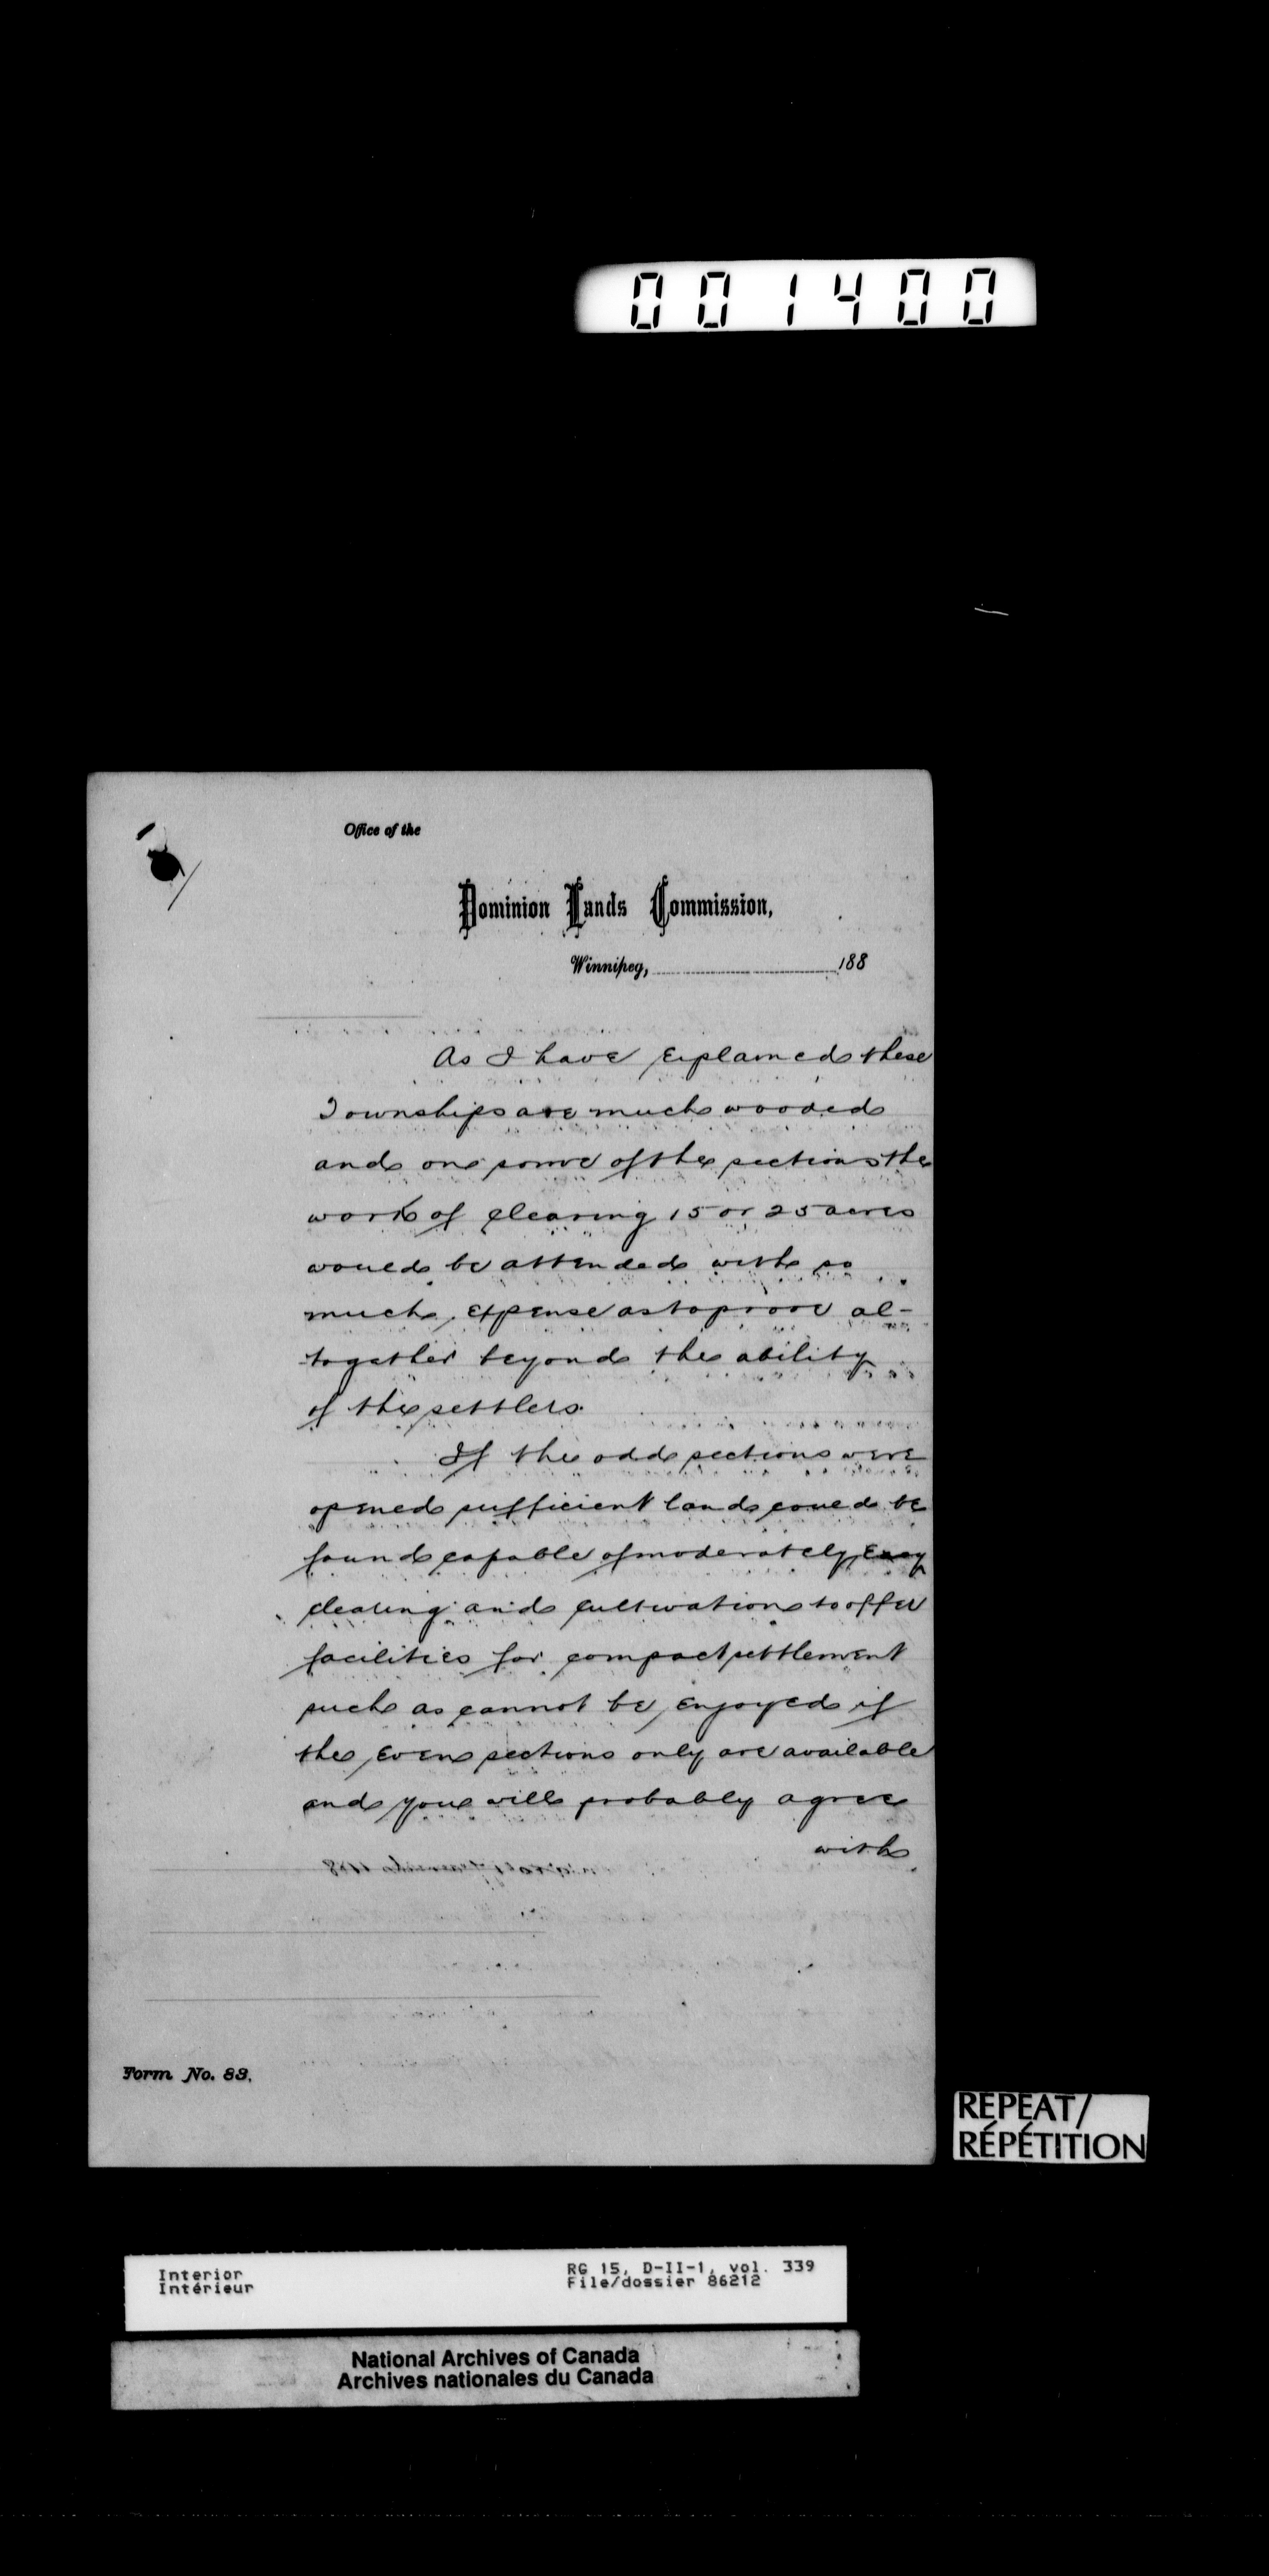 001400
Office of the
Dominion Lands Commission,
Winnipeg, 188
As I have explained these
Townships are much wooded
and on some of the sections the
work of clearing 15 or 25 acres
would be attended with so
much expense as to prove al-
together beyond the ability
of the settlers.
If the odd sections were
opened sufficient land could be
found capable of moderately easy
clearing and cultivation to offer
facilities for compact settlement
such as cannot be enjoyed if
the even sections only are available
and you will probably agree
with
Form No. 83.
REPEAT/
RÉPÉTITION
Interior RG 15, D-II-1, vol. 339
Intérieur File/dossier 86212
National Archives of Canada
Archives nationales du Canada